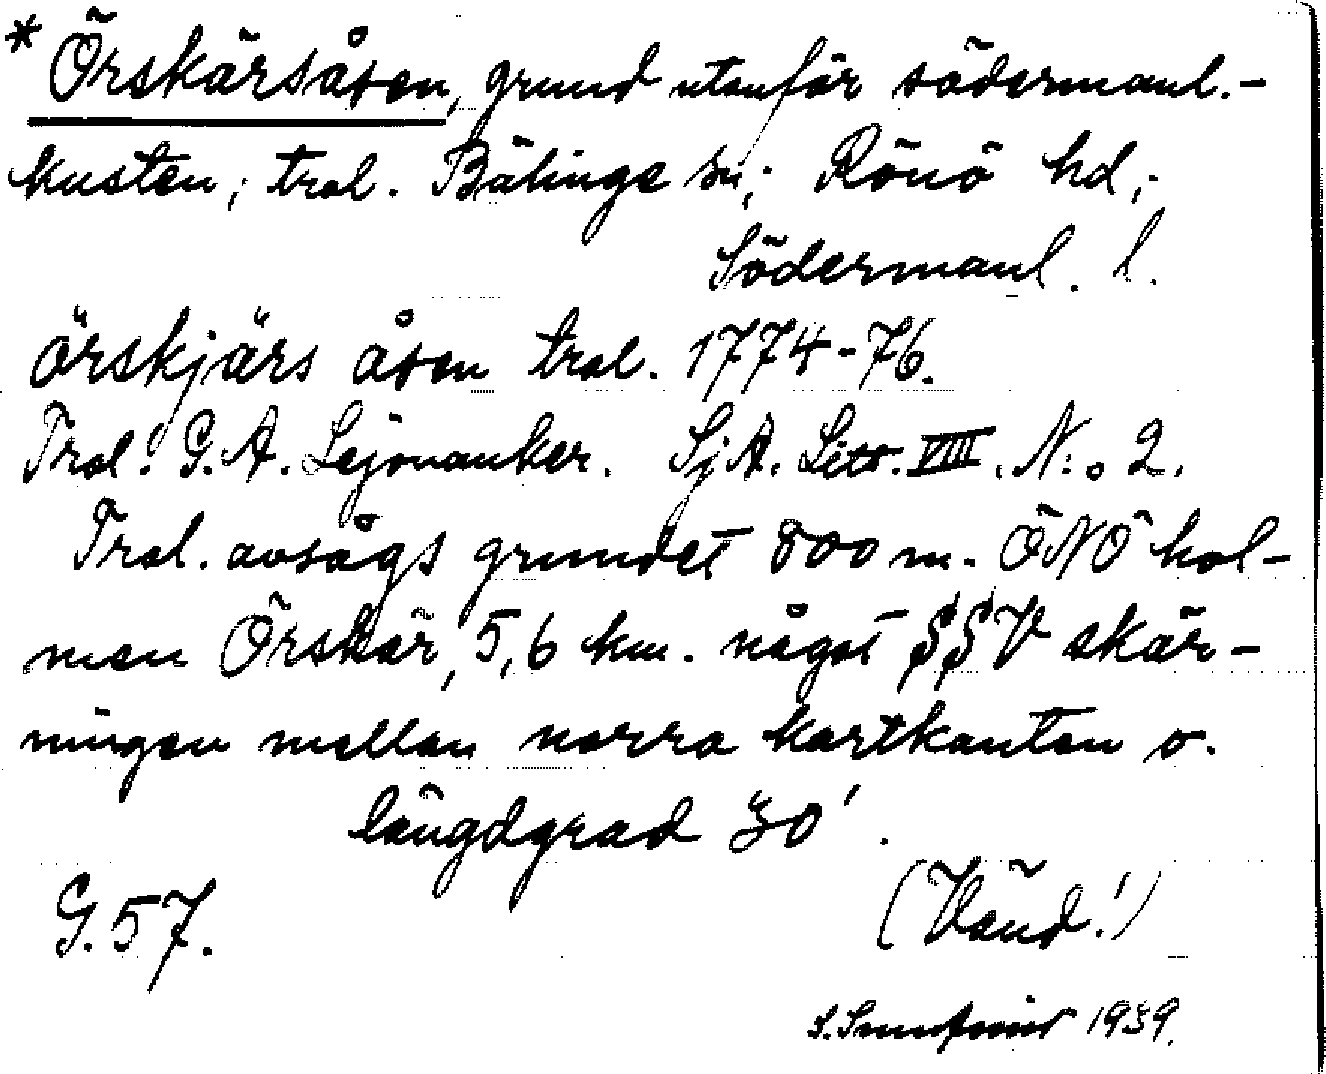 * Örskärsåsen, grund utanför södermanl.-
kusten; trol. Bälinge sn; Rönö hd;
Södermanl. l.
örskjärs åsen trol. 1774-76.
Trol. G. A. Lejonanker. SjA. Litt. VIII. N:o 2.
Trol. avsågs grundet 800 m. ÖNÖ hol-
men Örskär, 5,6 km. något SSV skär-
ningen mellan norra kartkanten o.
längdgrad 30'.
G. 57.
(Vänd!)
S. 1939.